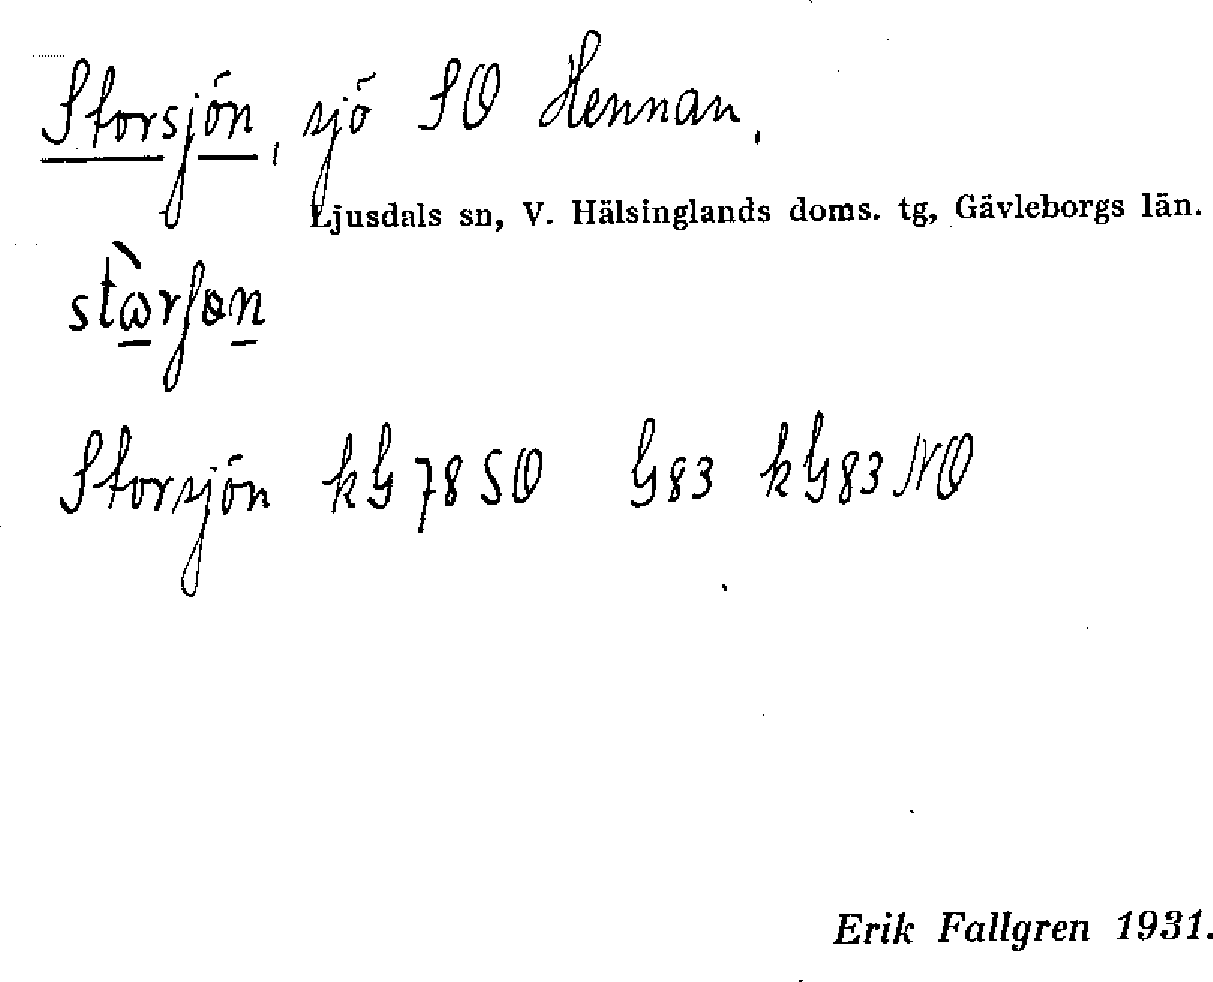 Storsjön, sjö SO Hennan.
Ljusdals sn, V. Hälsinglands doms. tg, Gävleborgs län.
Storsjön kG78SO G83 kG83NO
Erik Fallgren 1931.